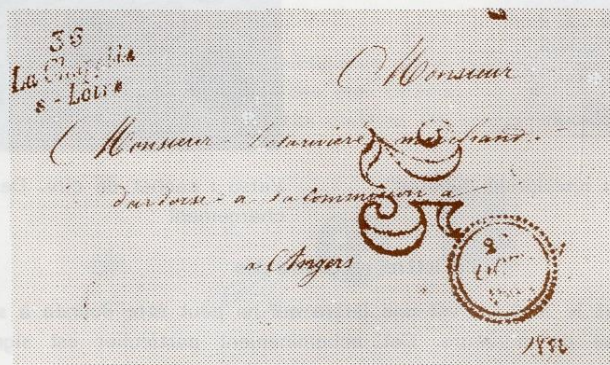 36
La Chapelle
s - Loire
Monsieur
Monsieur marchand
d'ardoise - a la Commission a
a Angers
25
1852